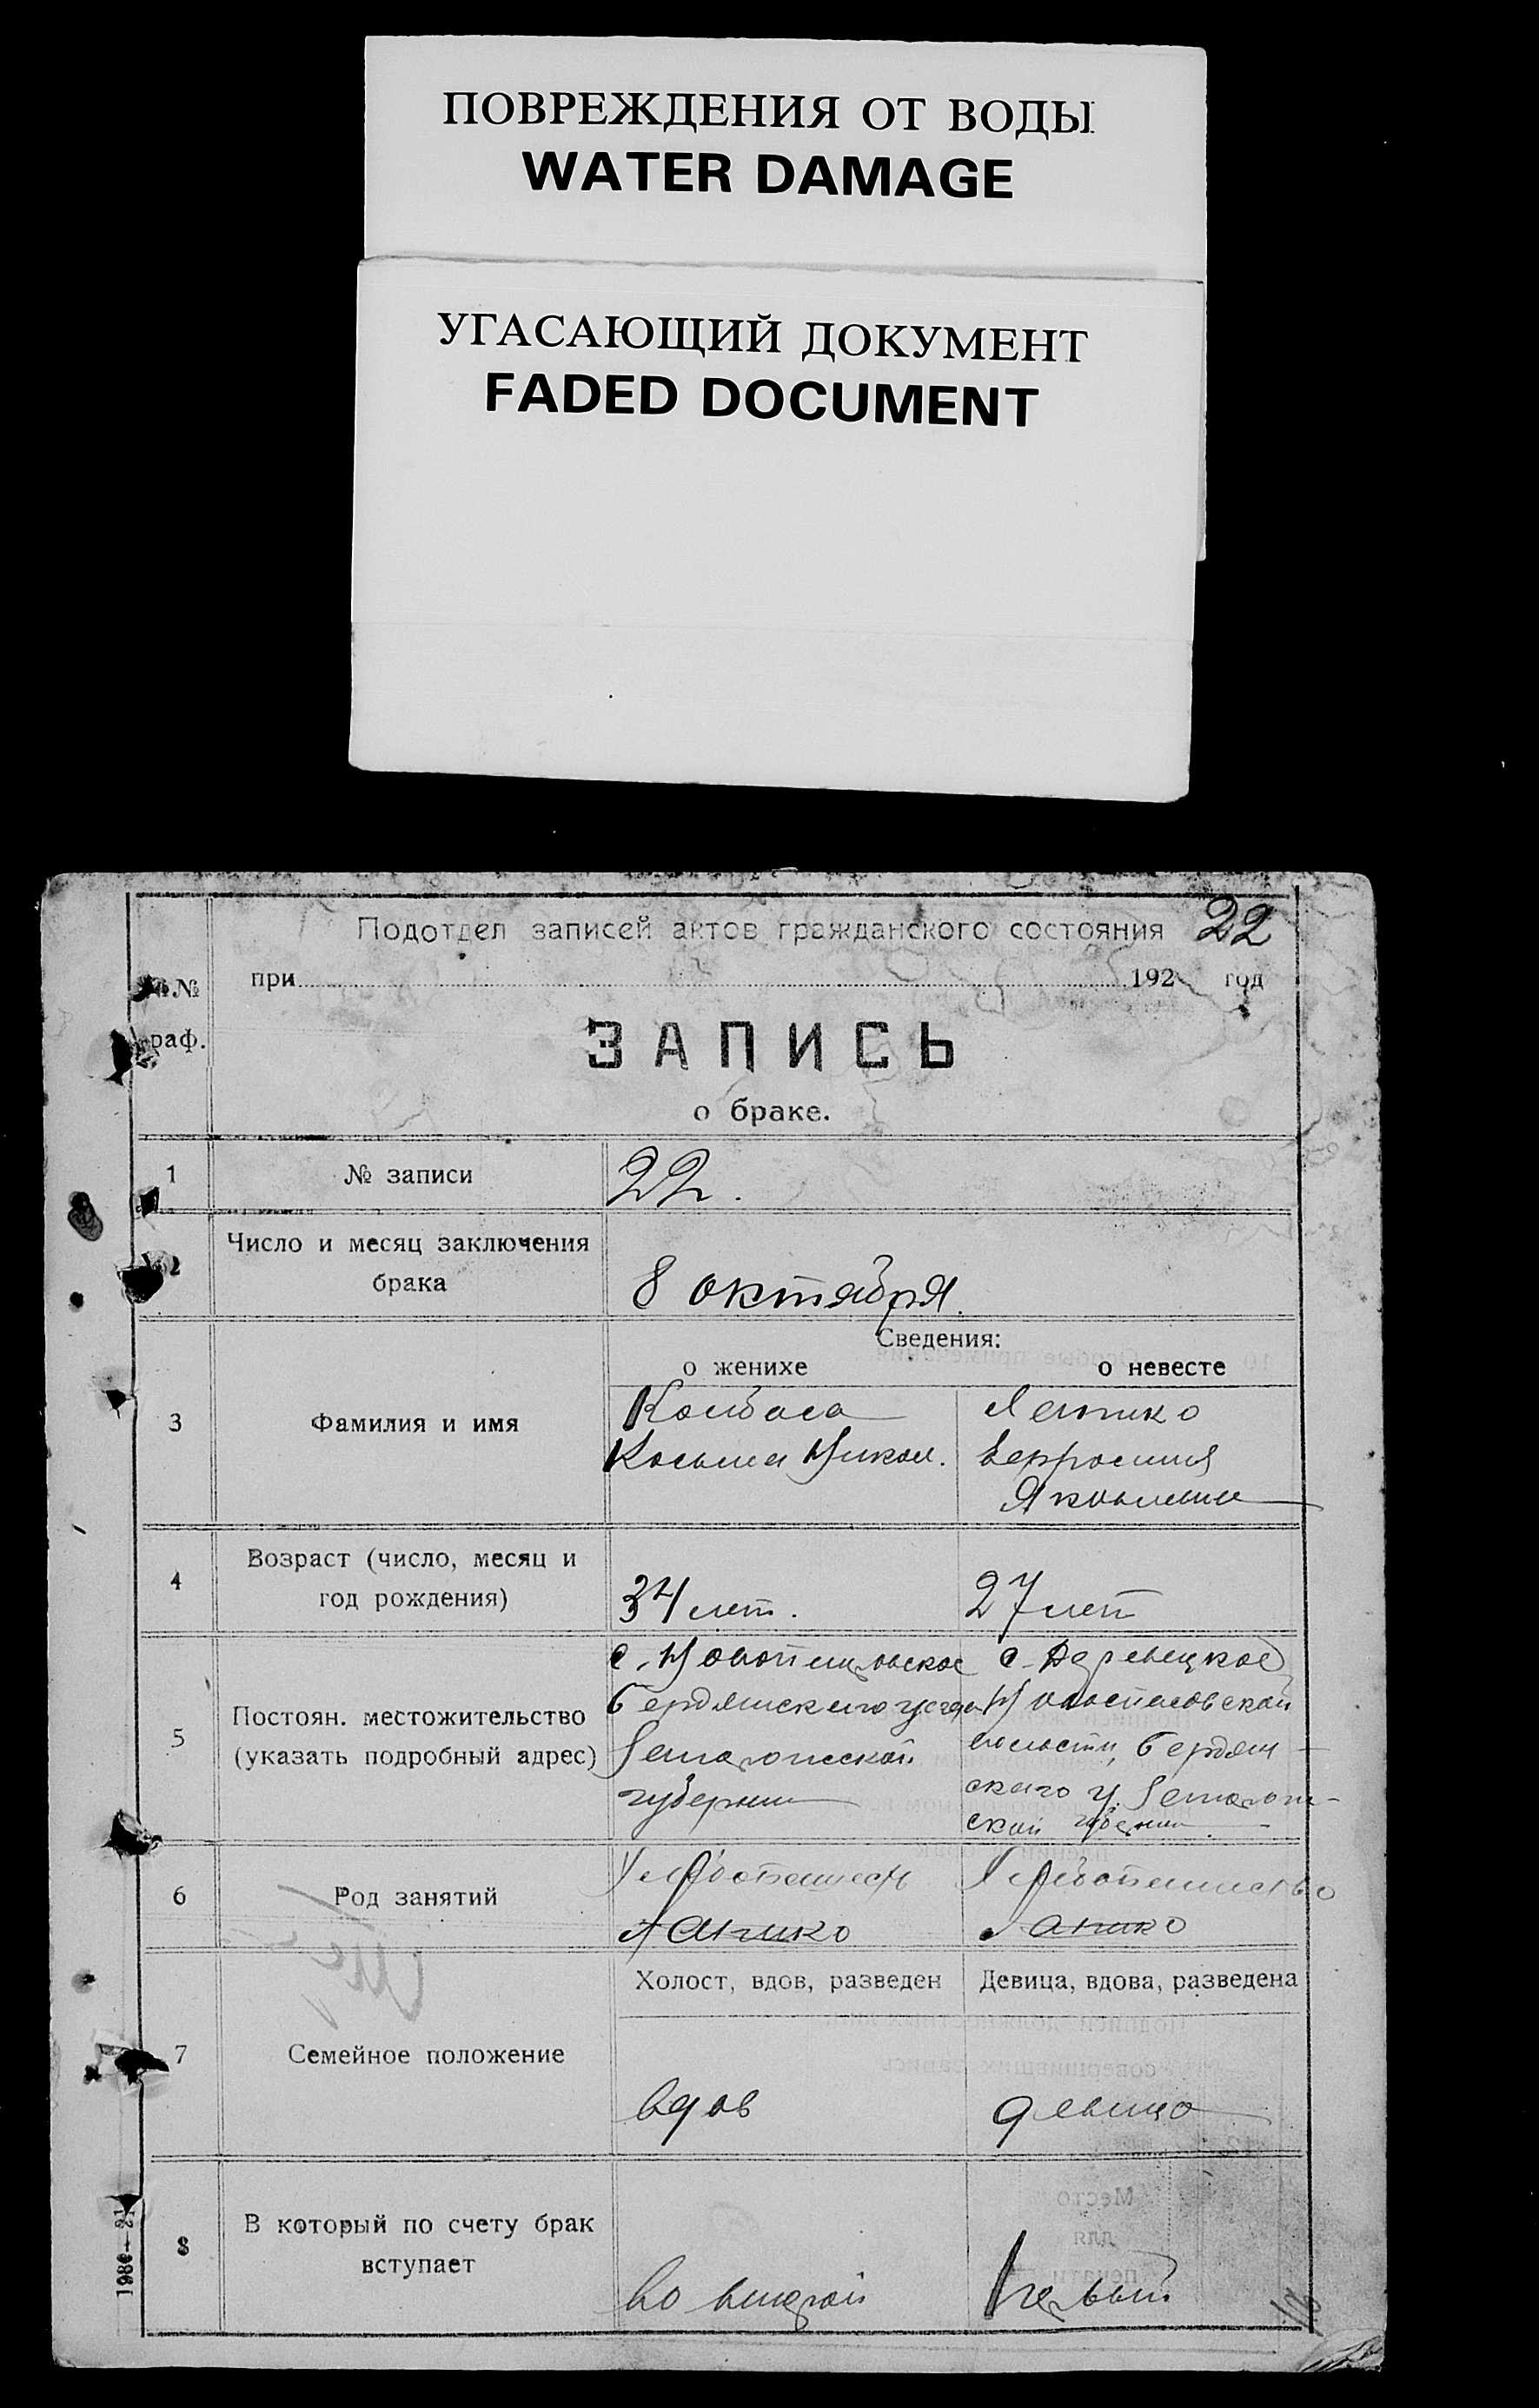 ПОВРЕЖДЕНИЯ ОТ ВОДЫ
WATER DAMAGE
УГАСАЮЩИЙ ДОКУМЕНТ
FADED DOCUMENT
Подотдел записей актов гражданского состояния 22
№
при 192 год
раф.
ЗАПИСЬ
о браке.
1 № записи 22.
2 Число и месяц заключения
брака 8 октября.
Сведения:
о женихе о невесте
3 Фамилия и имя
Колбаса
Косьма Никол. Ефросиния
Яковлевна
4 Возраст (число, месяц и
год рождения) 34 лет. 27 лет
5 Постоян. местожительство
(указать подробный адрес)
с.
Бердянского уезда
губернии
с.
Новоспасовской
волости, Бердян
ского у.
ской губернии
6 Род занятий
Хлебопашество
7 Семейное положение
Холост, вдов, разведен Девица, вдова, разведена
вдов девица
8 В который по счету брак
вступает
во второй первый